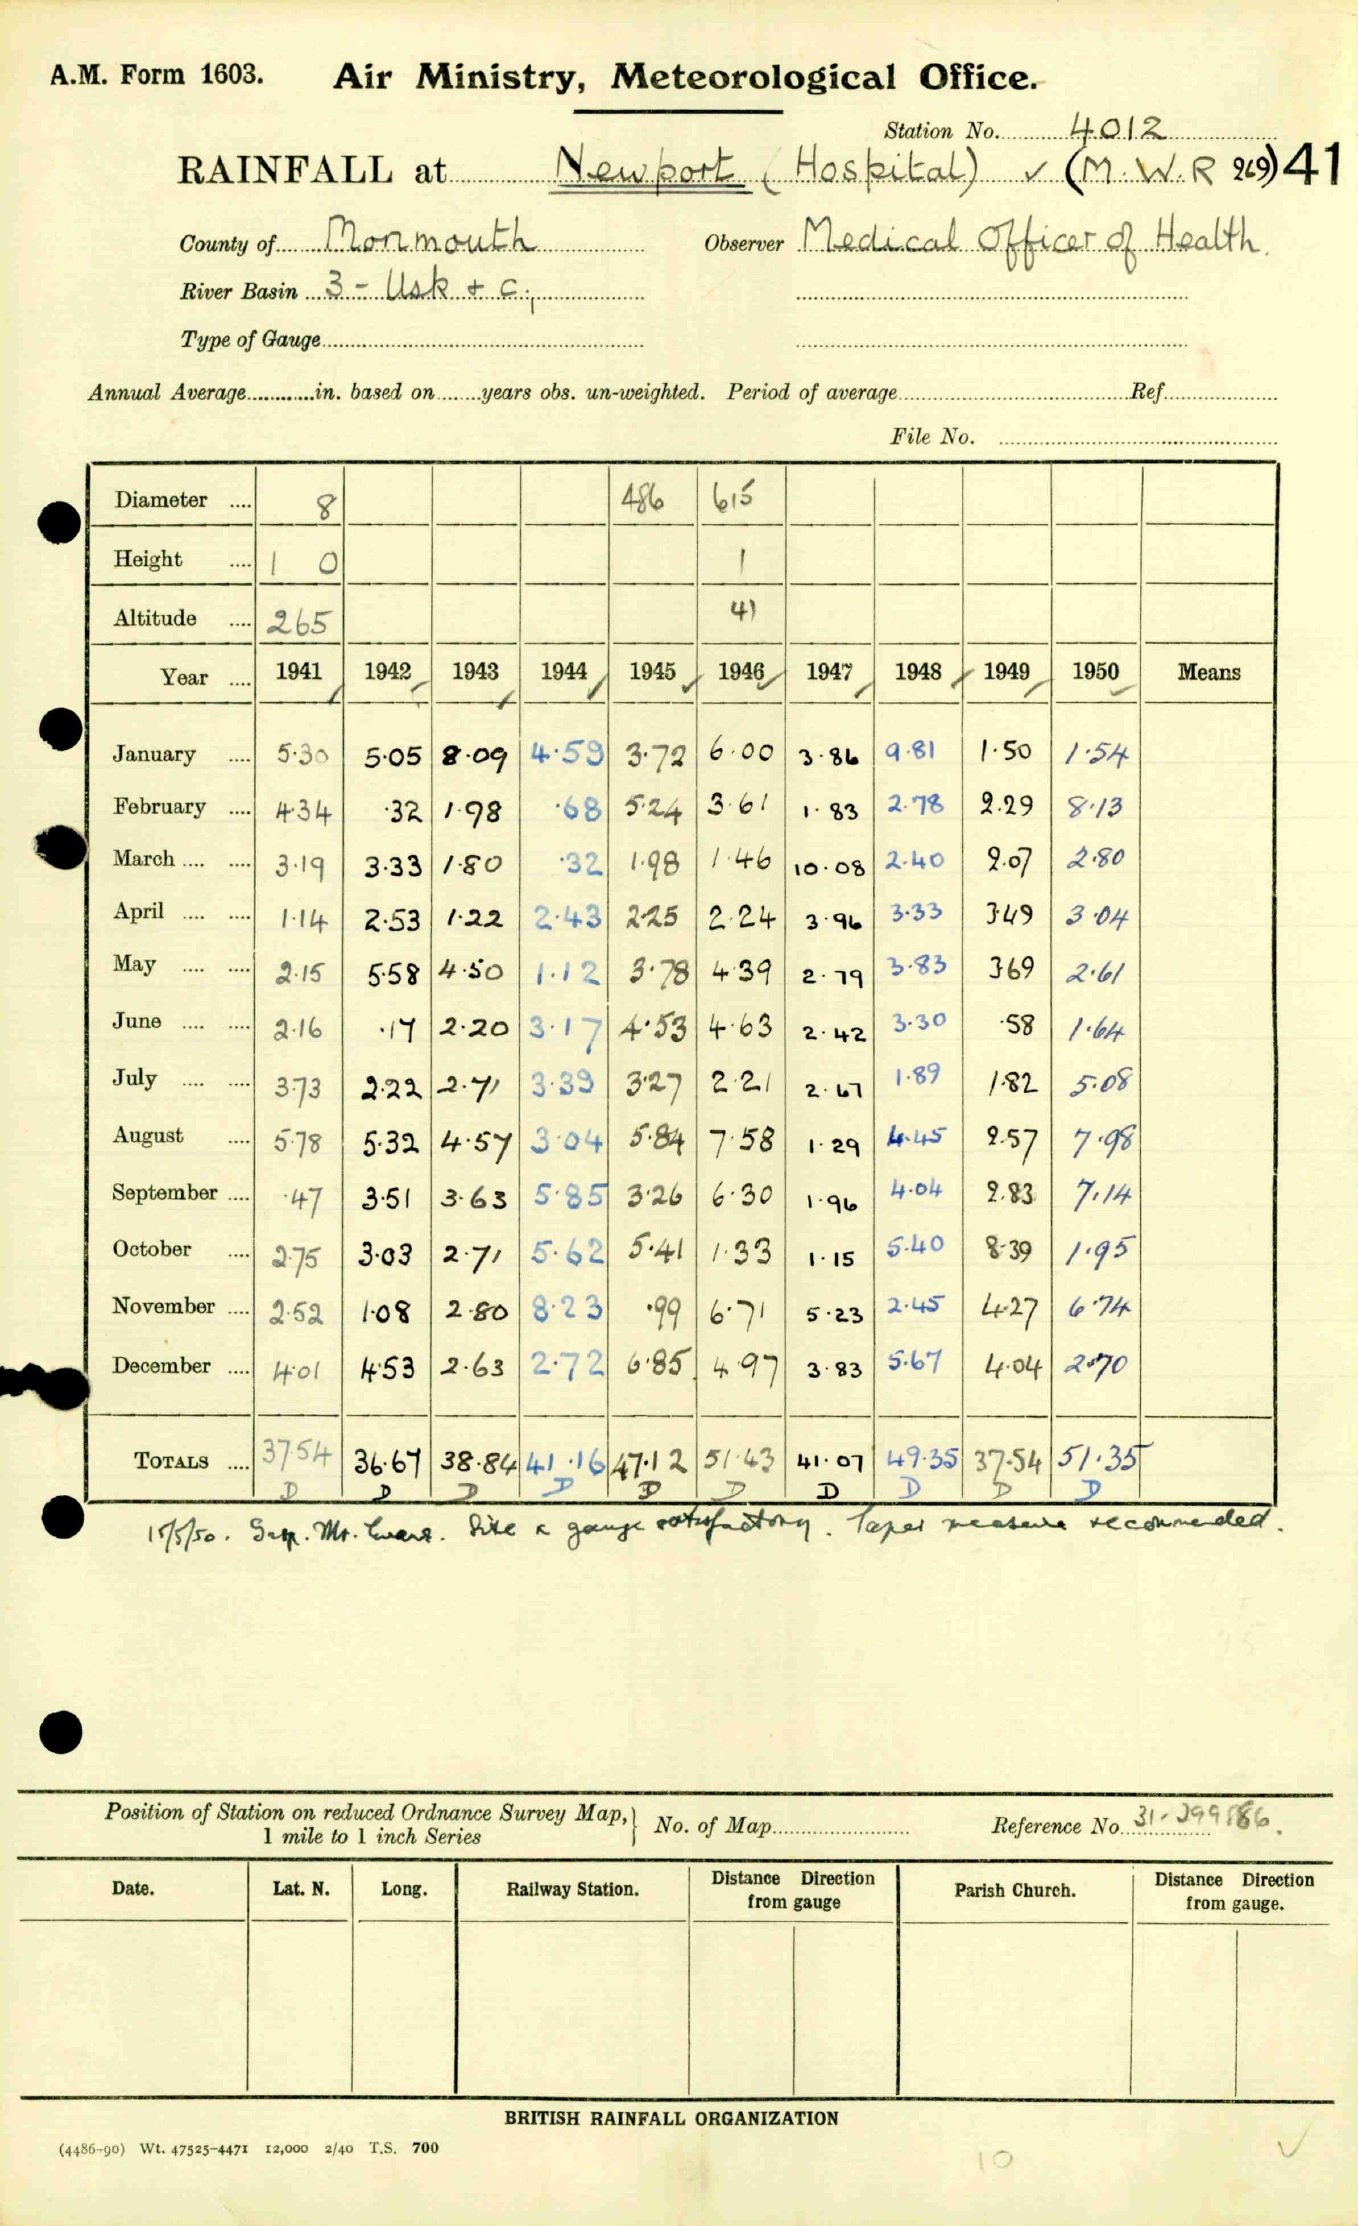 A.M. Form 1603. Air Ministry, Meteorological Office.
Station No. 4012
RAINFALL at Newport (Hospital) ✓ (M.W.R 269) 41
County of Monmouth Observer Medical Officer of Health.
River Basin 3 - Usk + c.,
Type of Gauge
Annual Average in. based on years obs. un-weighted. Period of average Ref
File No.
Diameter .... 8 486 615
Height .... 1 0 1
Altitude .... 265 41
Year .... 1941 1942 1943 1944 1945 1946 1947 1948 1949 1950 Means
January .... 5.30 5.05 8.09 4.59 3.72 6.00 3.86 9.81 1.50 1.54
February .... 4.34 .32 1.98 .68 5.24 3.61 1.83 2.78 2.29 8.13
March .... .... 3.19 3.33 1.80 .32 1.98 1.46 10.08 2.40 2.07 2.80
April .... .... 1.14 2.53 1.22 2.43 2.25 2.24 3.96 3.33 3.49 3.04
May .... .... 2.15 5.58 4.50 1.12 3.78 4.39 2.79 3.83 3.69 2.61
June .... .... 2.16 .17 2.20 3.17 4.53 4.63 2.42 3.30 .58 1.64
July .... .... 3.73 2.22 2.71 3.39 3.27 2.21 2.67 1.89 1.82 5.08
August .... 5.78 5.32 4.57 3.04 5.84 7.58 1.29 4.45 2.57 7.98
September .... .47 3.51 3.63 5.85 3.26 6.30 1.96 4.04 2.83 7.14
October .... 2.75 3.03 2.71 5.62 5.41 1.33 1.15 5.40 8.39 1.95
November .... 2.52 1.08 2.80 8.23 .99 6.71 5.23 2.45 4.27 6.74
December .... 4.01 4.53 2.63 2.72 6.85 4.97 3.83 5.67 4.04 2.70
TOTALS .... 37.54 36.67 38.84 41.16 47.12 51.43 41.07 49.35 37.54 51.35
D D D D D D D D D
15/5/50. Insp. Mr. Evans. Site & gauge satisfactory. Taper measure recommended.
Position of Station on reduced Ordnance Survey Map, No. of Map Reference No. 31-299886.
1 mile to 1 inch Series
Date. Lat. N. Long. Railway Station. Distance Direction from gauge Parish Church. Distance Direction from gauge.
BRITISH RAINFALL ORGANIZATION
(4486-90) Wt. 47525-4471 12,000 2/40 T.S. 700
10